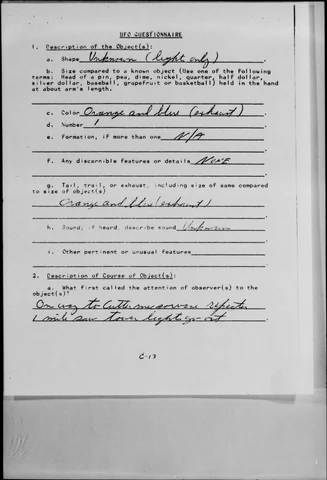 UFO QUESTIONNAIRE
1. Description of the Object(s):
a. Shape Unknown (light only)
b. Size compared to a known object (Use one of the following
terms: Head of a pin, pea, dime, nickel, quarter, half dollar,
silver dollar, baseball, grapefruit or basketball) held in the hand
at about arm's length.
c. Color Orange and blue (exhaust)
d. Number 1
e. Formation, if more than one N/A
f. Any discernible features or details NONE
g. Tail, trail, or exhaust, including size of same compared
to size of object(s)
Orange and blue (exhaust)
h. Sound, if heard, describe sound Unknown
i. Other pertinent or unusual features
2. Description of Course of Object(s):
a. What first called the attention of observer(s) to the
object(s)?
On way to Cutter microwave repeater
1 mile saw tower lights go out
C-13